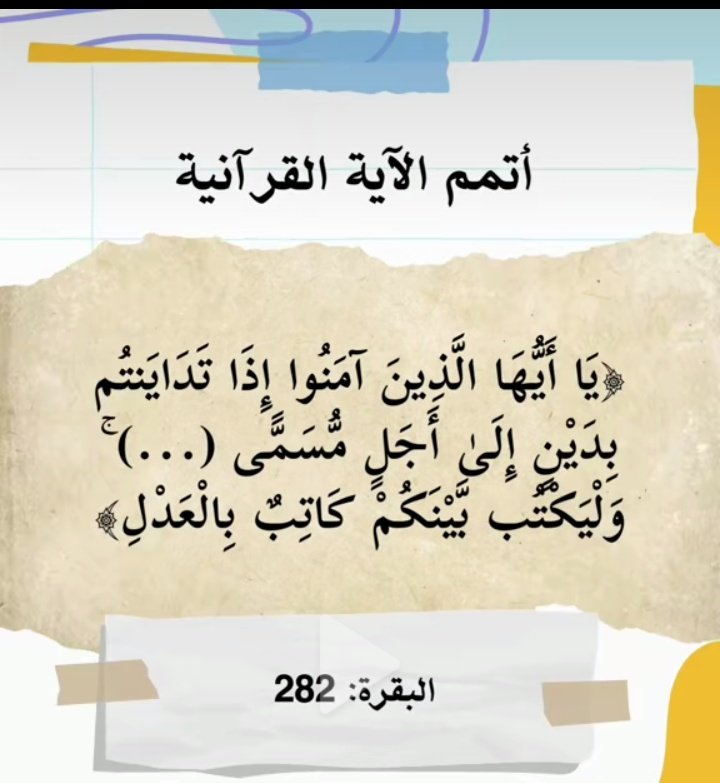 أتمم الآية القرآنية
﴿يَا أَيُّهَا الَّذِينَ آمَنُوا إِذَا تَدَايَنتُم
بِدَيْنٍ إِلَىٰ أَجَلٍ مُّسَمًّى (...) ۚ
وَلْيَكْتُب بَّيْنَكُمْ كَاتِبٌ بِالْعَدْلِ﴾
البقرة: 282